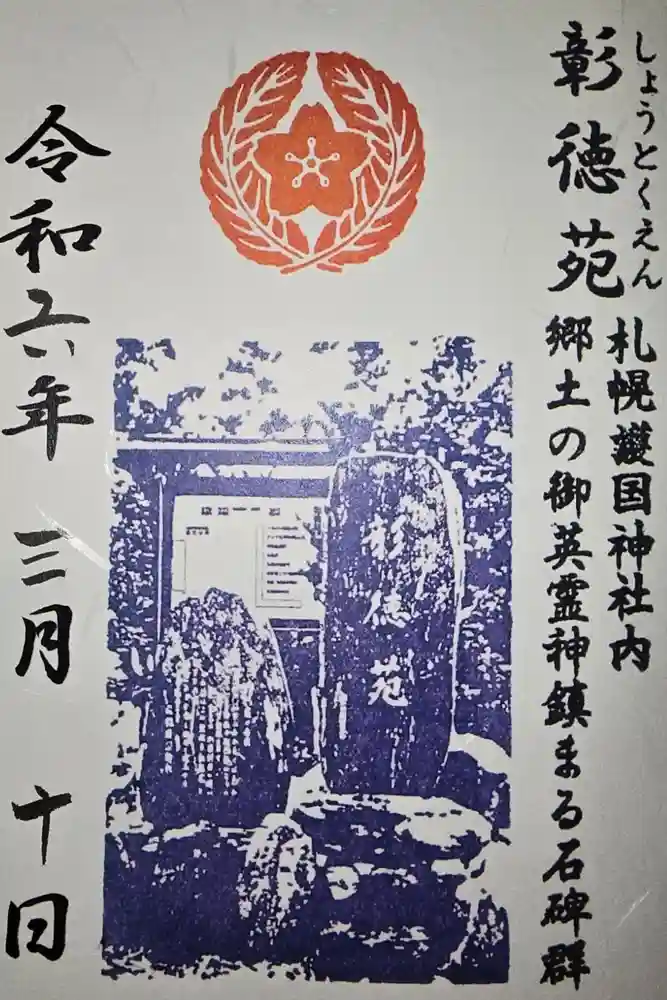 しょうとくえん
彰徳苑
札幌護国神社内
郷土の御英霊神鎮まる石碑群
彰徳苑
令和六年 三月 十日